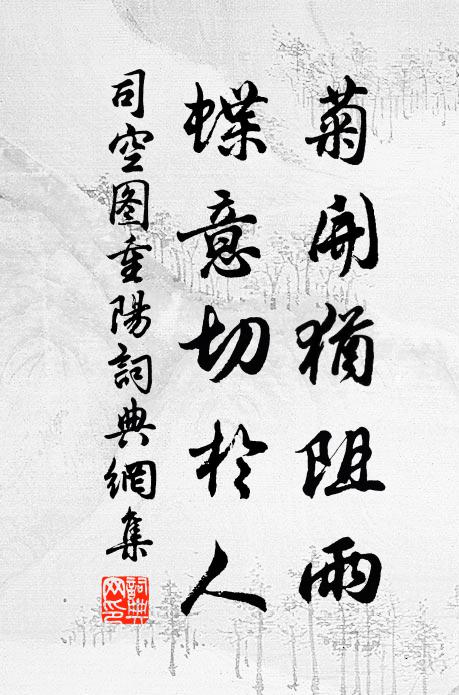 菊開猶阻雨
蝶意切於人
司空图重陽詞典網集
詞典網印